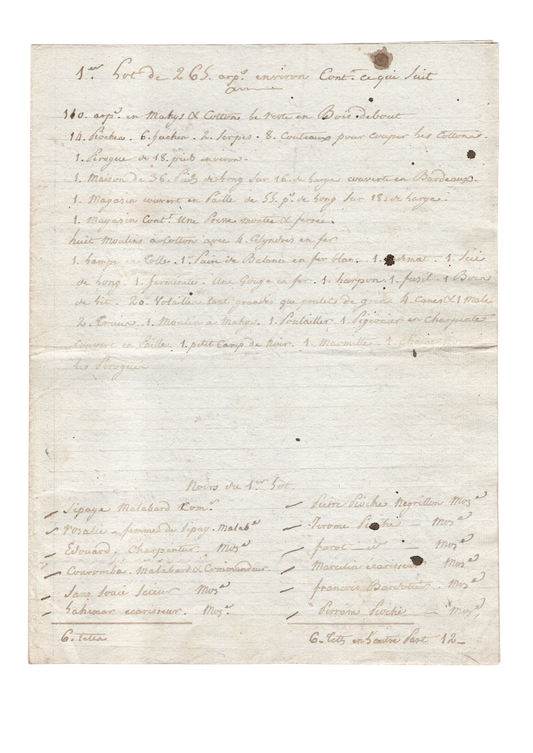 1er Lot de 265. arps. environ Contt. ce qui Suit
110. arps. en Mahys & Cottons le reste en Bois debout
14. Pioches. 6. haches. 2. Serpes. 8. Couteaux pour couper les Cottons.
1. Pirogue de 18. pieds environ.
1. Maison de 36. Pieds de long sur 16. de large couverte en Bardeaux
1. Magazin couvert en Paille de 55. p. de long sur 18 de large.
1. Magazin Contt. Une Presse montée & ferrée.
huit Moulins à Cotton avec 4. Cylindres en fer
1. Lampe en Tolle. 1. Paire de Balance en fer blan. 1. 1. Scie
de long. 1. Une Gouge en fer. 1. harpon. 1. fusil. 1.
de lit. 20. Volailles tant grandes que poulets de grain 4. Canes & 1 Male
2. 1. Moulin à Mahys. 1. Poulailler. 1. Pigeonier en Charpente
Couvert en Paille. 1. petit Camp de Noir. 1. Marmitte. 1.
les Pirogues
Noirs du 1er Lot.
Sipaye Malabard Com.
Rosalie femme de Sipay. Malabe
Edouard, Charpentier, Moze
Malabard & Commandeur
Sans Souci Scieur Moze
ecarisseur. Moze
6. tetes
Pierre Pioches Negrillon Moze
Jerome Pioche Moze
Moze
Marcelin ecarisseur Moze
francois Moze
Pioche Moze
6. Tetes en l'autre Part 12